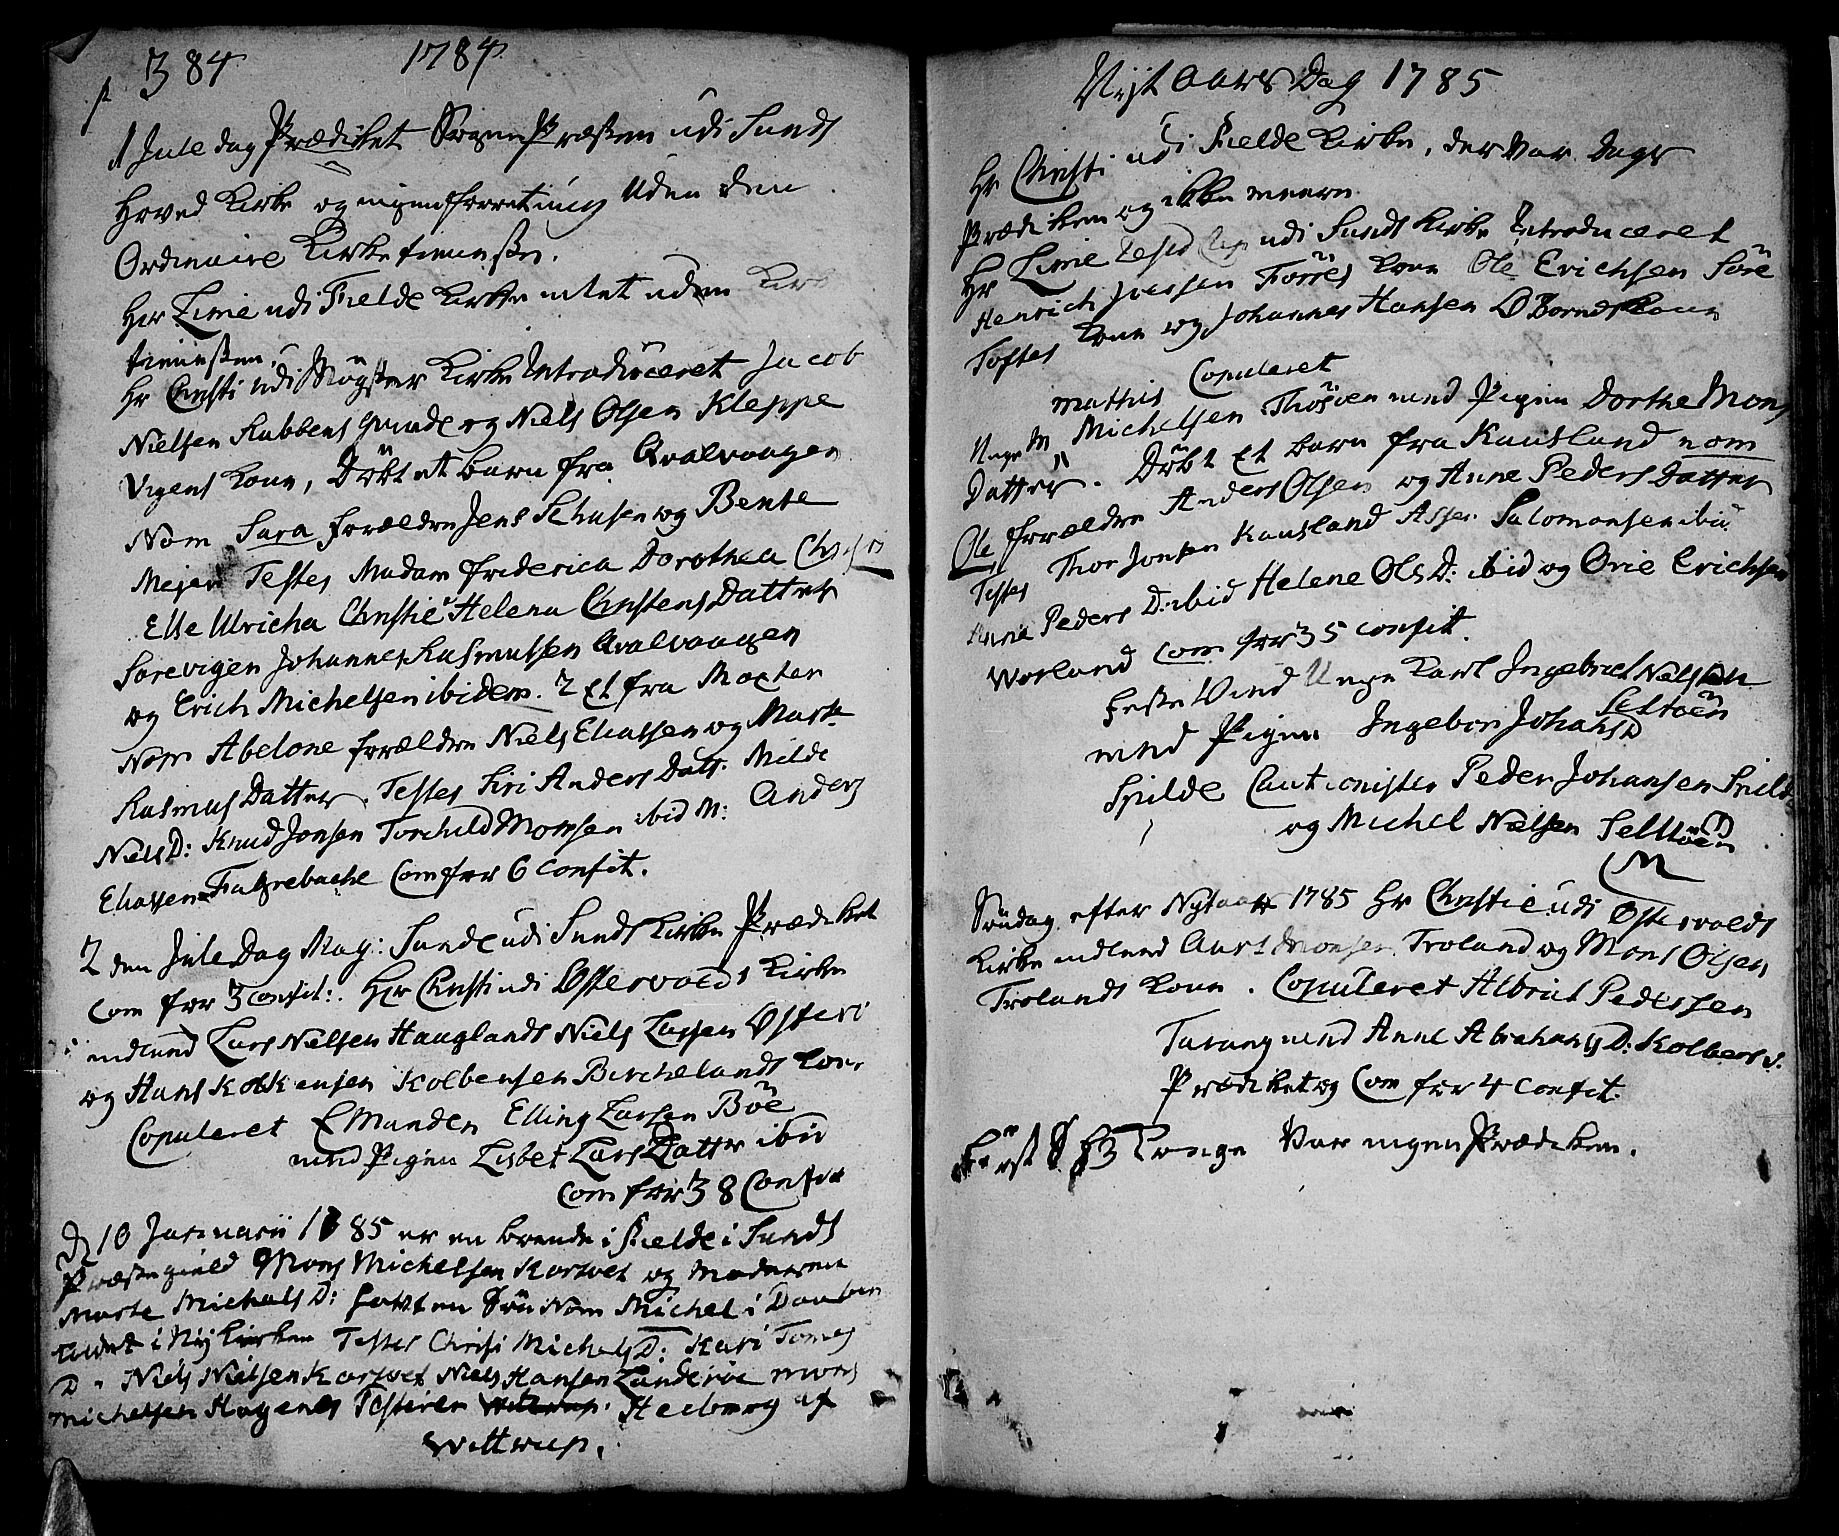 384 1784
1 Jule dag Prædicket Sogne Præsten udi Sunds
Hoved Kirke og ingen forretning Uden den
Ordinaire Kirke tieneste.
Her Zime udi Fielde Kirke intet uden Kirke
tienesten.
Hr Christi udi Møgster Kirke Introduceret Jacob
Nielsen Rabbens grunde og Niels Olsen Kleppe
Vigens Kone, Döbt et barn fra Qvalvaagen
Nom Sara forældre Jens Schusen og Bente
Mejer Testes Madam Friderica Dorothea Christi
Else Ulricha Christie Helena Christens Datter
Sorevigen Johannes Rasmussen Qvalvaagen
og Erich Michelsen ibidem. 2 Et fra Moster
Nom Abelone forældre Niels Eliassen og Marte
Rasmus Datter. Testes Siri Anders Datt. Milde
Niels D: Knud Jonsen Torchild Monsen ibid M: Anders
Eliassen Com for 6 confit.
2 den Jule Dag Mag: Sunde udi Sunds Kirke Prædicket
Com for 3 confit:. Hr Christi udi Ostervolds Kirke
indleed Lars Nielsen Hauglands Niels Larsen
og Hans Kolbensen Birchelands Kone
Copuleret EManden Elling Larsen Böe
med Pigen Lisbet Lars Datter ibid
Com for 38 Confit
D 10 Januarii 1785 er en bonde i Fielde i Sunds
Præste gield Mons Michelsen Korsvet og Moderen
Marte Michels D: Son Nom Michel i Daaben
i Nykirken Testes Christi Michels D: Kari Tomes
D. Niels Nielsen Korsvet Niels Hansen Lunderöe Mons
Michelsen Hagenes af
Wittrup.
Nyt Aars Dag 1785
Hr Christi udi Fielde Kirke, der var Dags
Prædiken og ikke meere
Hr Zime udi Sunds Kirke Introduceret
Henrich Jversen Kone Ole Erichsen Söre
Toftes Kone og Johannes Hansen Kone
Copuleret
Mathis
Unge M Michelsen med Pigen Dorthe Mons
Datter. Döbt Et barn fra Kausland nom
Ole forældre Anders Olsen og Anne Peders Datter
Testes Thor Jonsen Kausland Salomonsen ibid
Anne Peders D: ibid Helene Ols D: ibid og Brie Erichsen
Worland com for 35 confit.
Feste Unge Karl Ingebricht Nielsen
Seltöen
med Pigen Ingebor Johans D
Spilde Cautionister Peder Johansen Spilde
og Michel Nielsen Seltöen
M
Söndag efter Nytaar 1785 Hr Christie udi Ostervolds
Kirke indleed Monsen Troland og Mons Olsen
Trolands Kone. Copuleret Albricht Pedersen
med Anne Abrahams D: Kolbens.
Prædiket og Com for 4 confit.
Först S Konge Var ingen Prædiken.